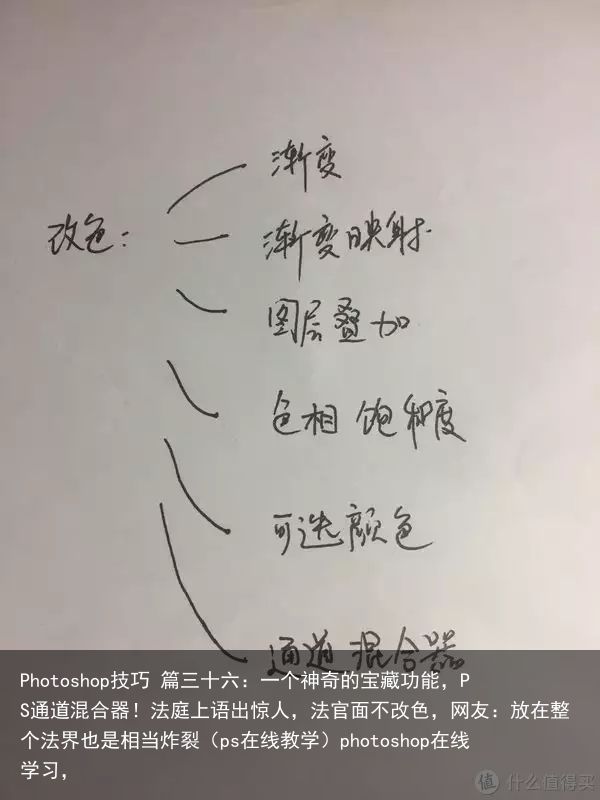 渐变
改色：
渐变映射
图层叠加
色相 饱和度
可选颜色
通道混合器
Photoshop技巧 篇三十六：一个神奇的宝藏功能，P
S通道混合器！法庭上语出惊人，法官面不改色，网友：放在整
个法界也是相当炸裂（ps在线教学）photoshop在线
学习，
值 什么值得买